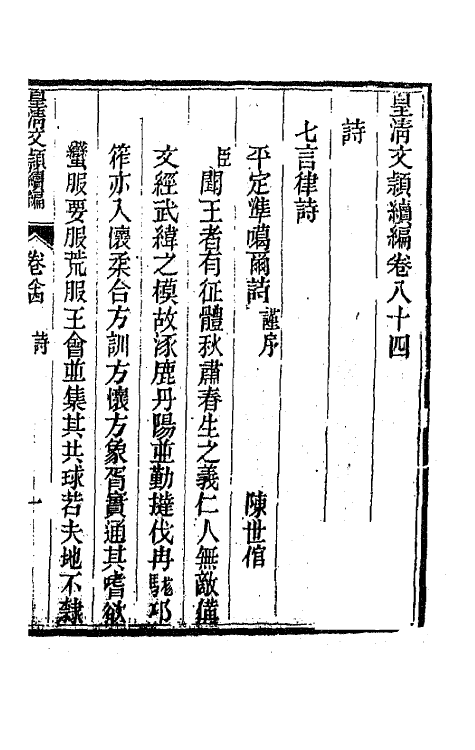 皇清文穎續編卷八十四
詩
七言律詩
平定準噶爾詩 謹序 陳世倌
臣聞王者有征體秋肅春生之義仁人無敵備
文經武緯之模故涿鹿丹陽並勤撻伐冉駹邛
筰亦入懷柔台方訓方懷方象胥實通其嗜欲
蠻服要服荒服王會並集其共球若夫地不隸
皇清文穎續編 卷八十四 詩 一